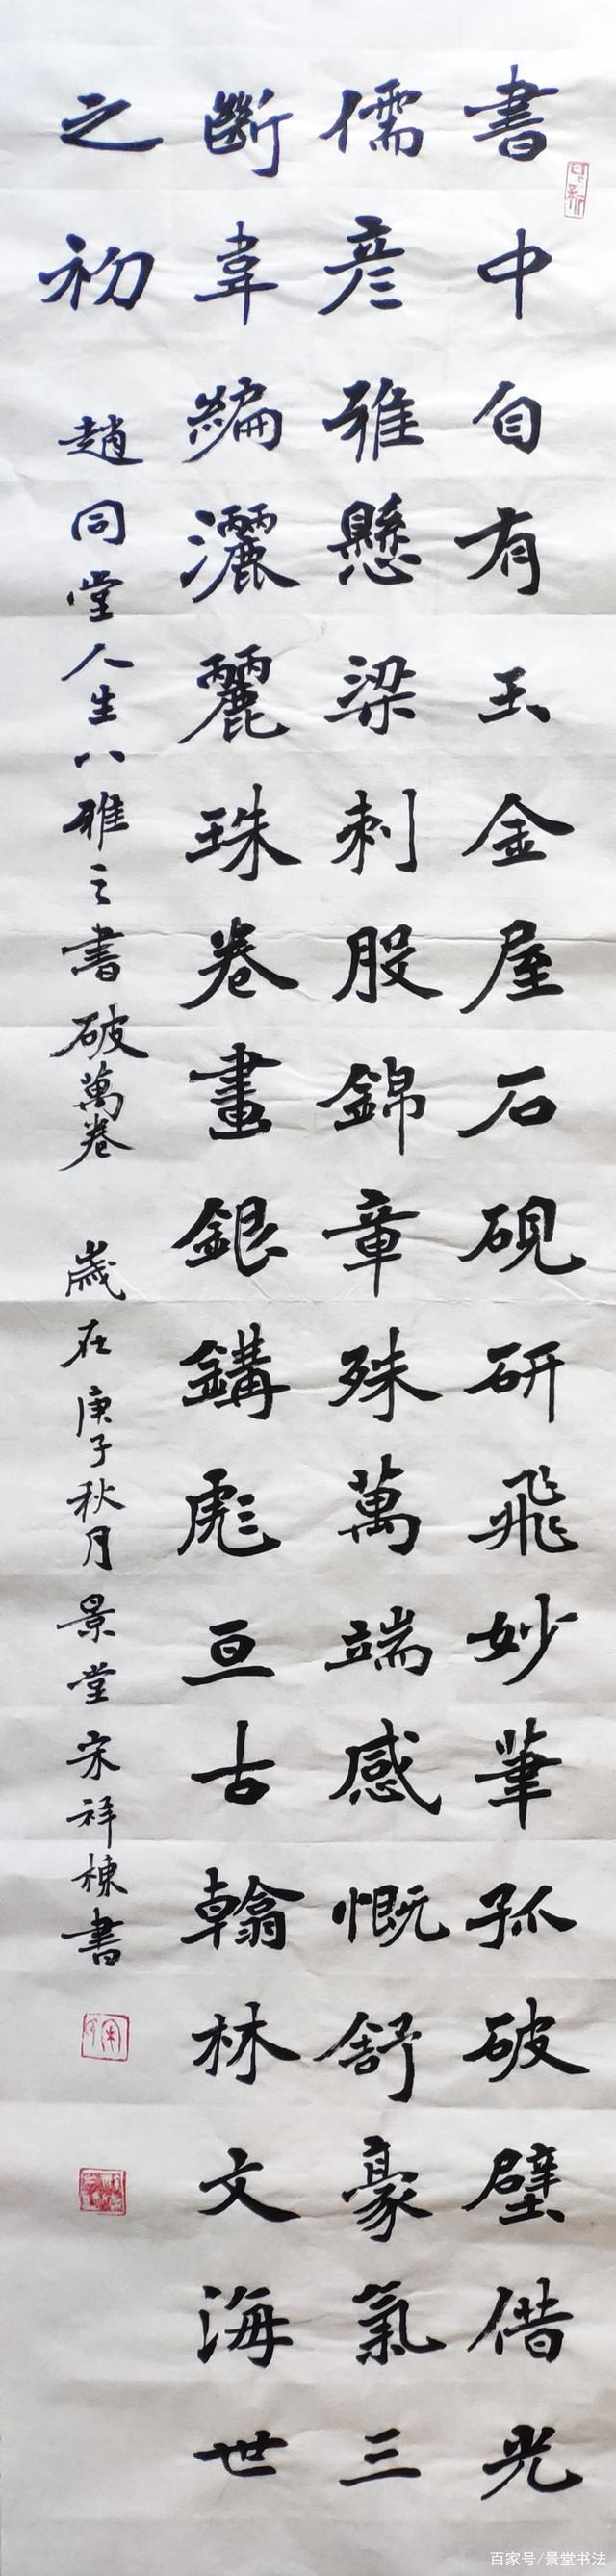 書中自有玉金屋石硯研飛妙筆孤破壁借光
儒彥雅懸梁刺股錦章殊萬端感慨舒豪氣三
斷韋編灑麗珠卷畫銀鑄彪亘古翰林文海世
之初
趙同堂人生八雅之書破萬卷 歲在庚子秋月景堂宋祥棟書
百家号/景堂书法